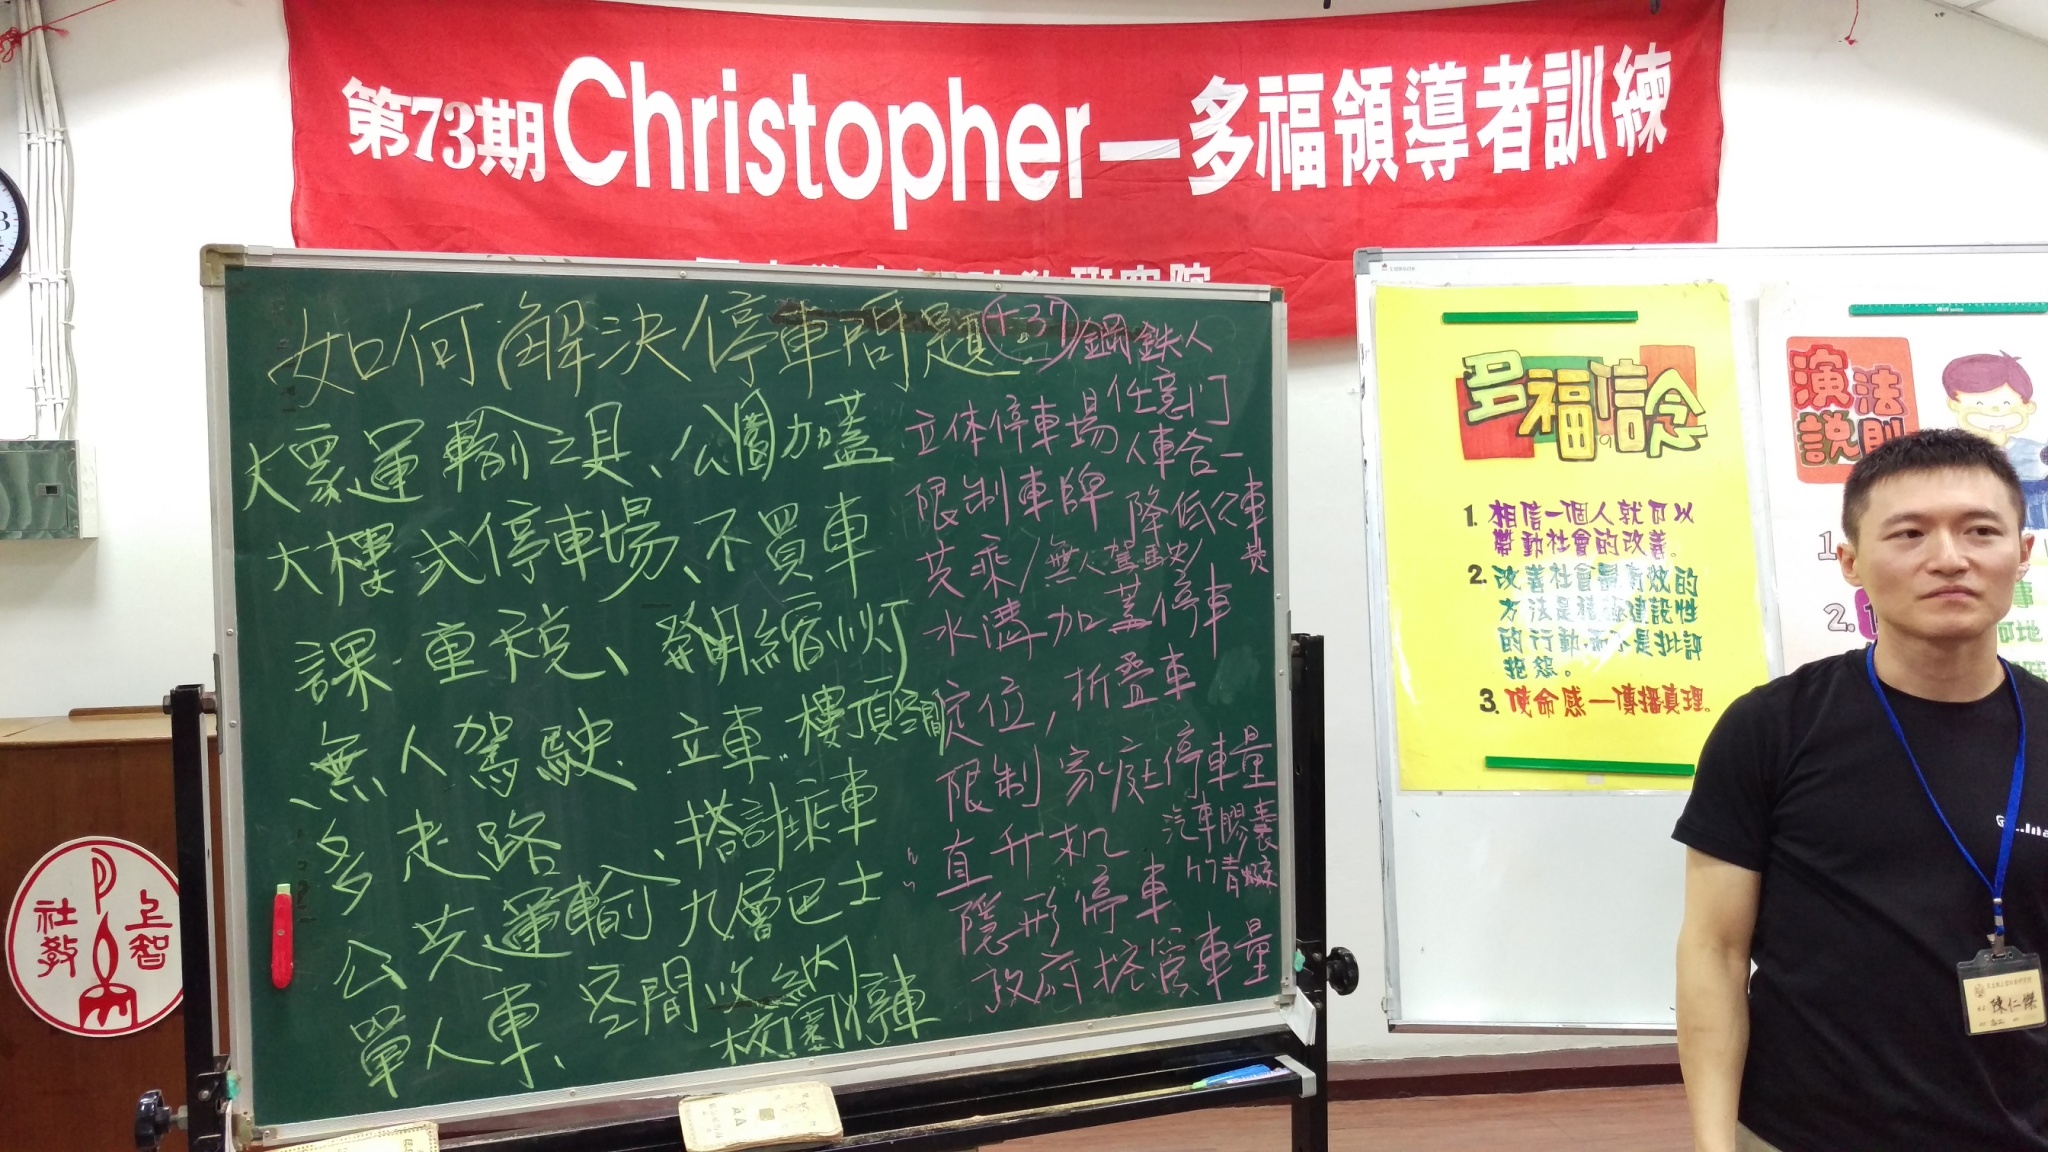 第73期Christopher—多福領導者訓練
如何解決停車問題
+37
鋼鐵人
大眾運輸工具、公園加蓋
大樓式停車場、不買車
課重稅、發明縮小灯
無人駕駛 立車 樓頂空間
多走路、搭計程車
公共運輸、九層巴士
單人車、空間收納
校園停車
立体停車場
任意门
限制車牌
人車合一
共乘/無人駕駛/
降低公車费
水溝加蓋停車
定位，折疊車
限制家庭停車量
直升机
汽車膠囊
隱形停車
政府控管車量
多福の信念
1. 相信一個人就可以
帶動社會的改善。
2. 改善社會最有效的
方法是積極建設性
的行動，而不是批評
抱怨。
3. 使命感一傳播真理。
演法
說則
1.
2.
上智
社教
陳仁傑